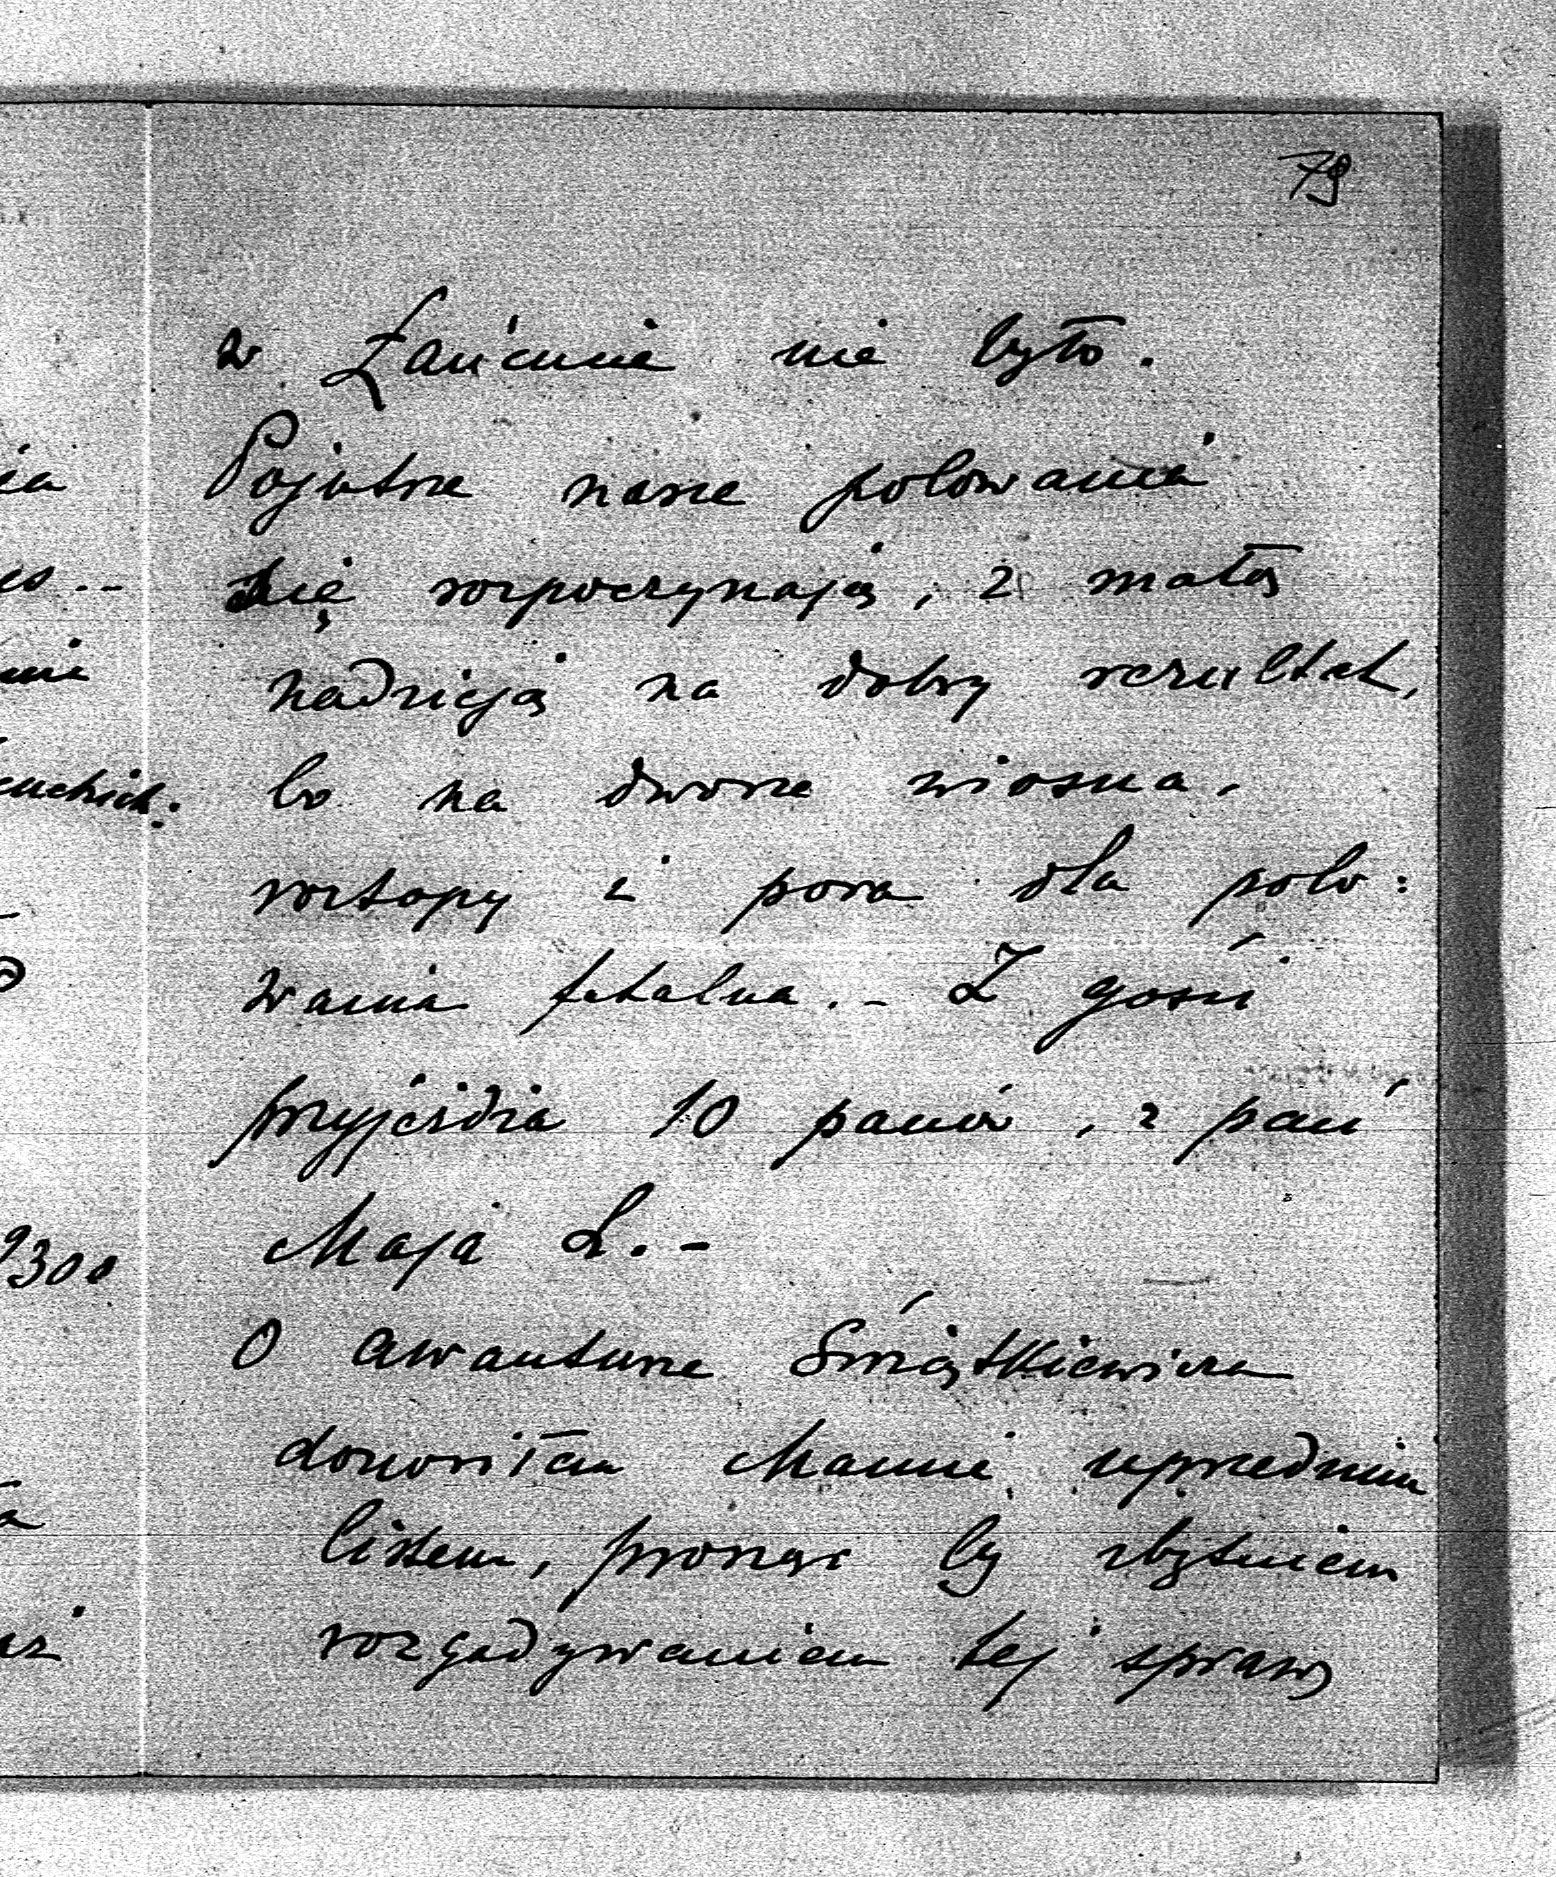 79
w Łańcucie nie było.
Pojutrze nasze polowania
się rozpoczynają, z małą
nadzieją na dobry rezultat,
bo na dworze wiosna,
roztopy i pora dla polo:
wania fatalna. - Z gości
przyjeżdża 10 panów, z pań
Maja L. -
O awanturze Świątkiewicza
donosiłam Mamie uprzednim
listem, prosząc by zbytniem
rozgadywaniem tej sprawy
ia
es..
nie
cuchich:
9300